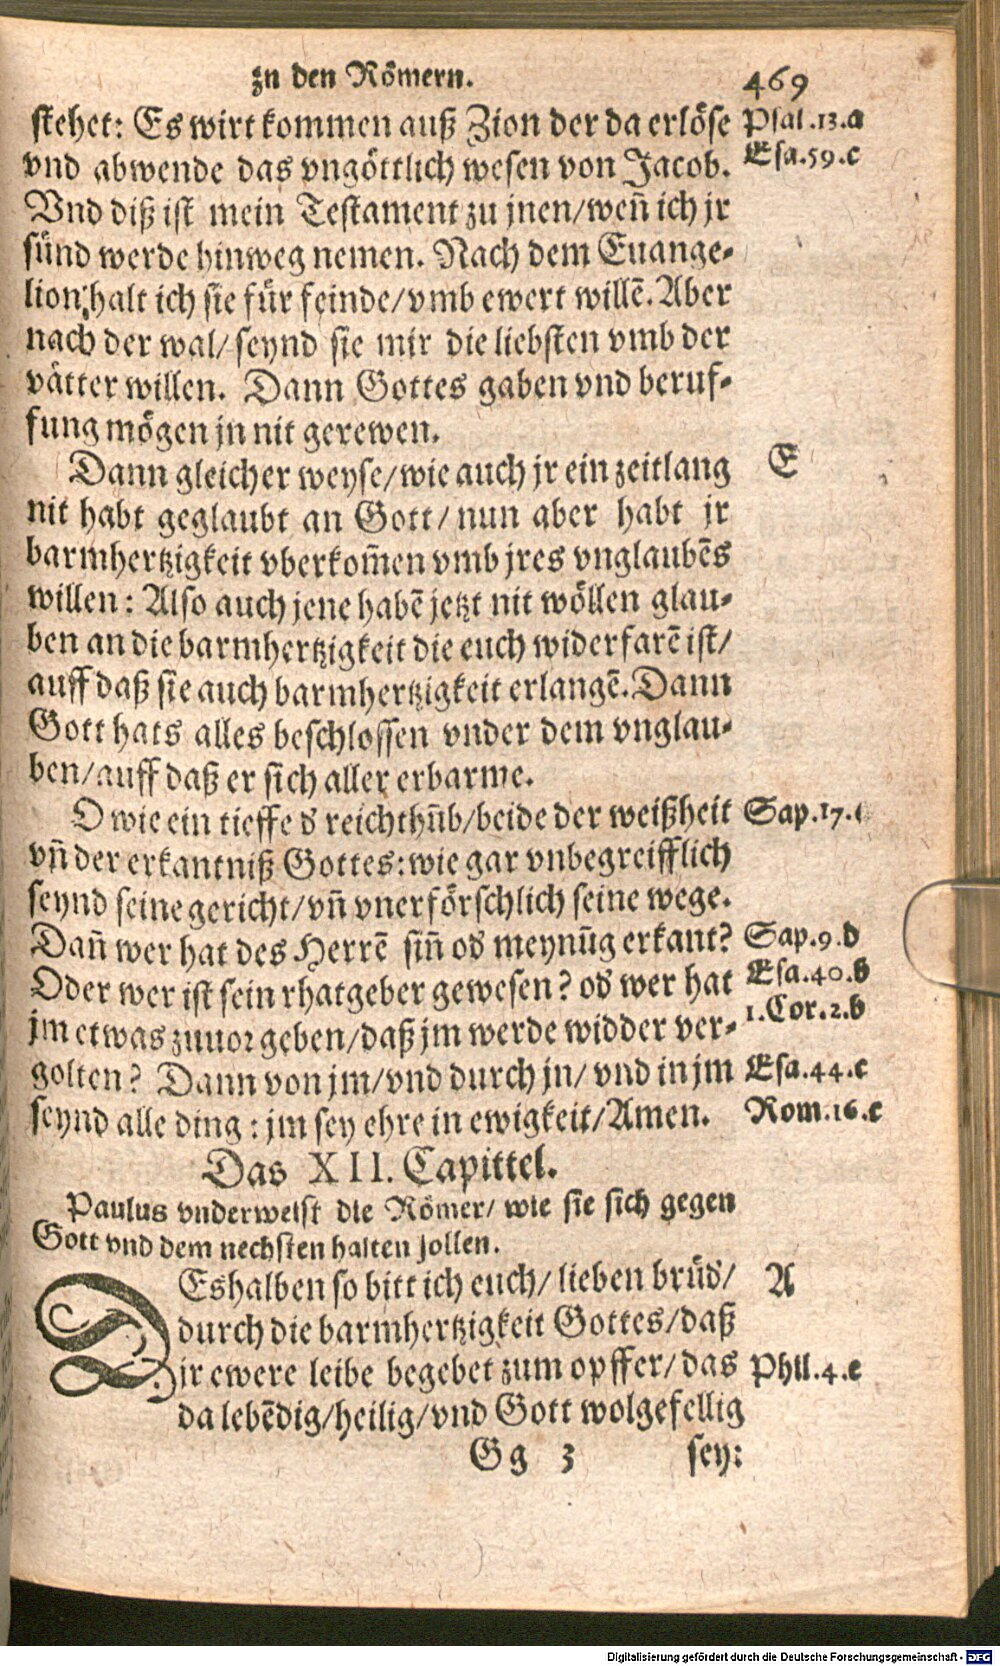 zu den Römern. 469
stehet: Es wirt kommen auß Zion der da erlöse Psal.13.a
vnd abwende das vngöttlich wesen von Jacob. Esa.59.c
Vnd diß ist mein Testament zu jnen/weñ ich jr
sünd werde hinweg nemen. Nach dem Euange-
lion halt ich sie für feinde/vmb ewert willē. Aber
nach der wal/ seynd sie mir die liebsten vmb der
vätter willen. Dann Gottes gaben vnd beruf-
fung mögen jn nit gerewen.
Dann gleicher weyse/wie auch jr ein zeitlang E
nit habt geglaubt an Gott/ nun aber habt jr
barmhertzigkeit vberkom̄en vmb jres vnglaubēs
willen: Also auch jene habē jetzt nit wöllen glau-
ben an die barmhertzigkeit die euch widerfarē ist/
auff daß sie auch barmhertzigkeit erlangē. Dann
Gott hats alles beschlossen vnder dem vnglau-
ben/auff daß er sich aller erbarme.
O wie ein tieffe d reichthūb/beide der weißheit Sap.17.
vñ der erkantniß Gottes: wie gar vnbegreifflich
seynd seine gericht/vñ vnerförschlich seine wege.
Dañ wer hat des Herrē siñ od meynūg erkant? Sap.9.d
Oder wer ist sein rhatgeber gewesen? od wer hat Esa.40.b
jm etwas zuuor geben/daß jm werde widder ver- 1.Cor.2.b
golten? Dann von jm/vnd durch jn/ vnd in jm Esa.44.c
seynd alle ding: jm sey ehre in ewigkeit/Amen. Rom.16.c
Das XII. Capittel.
Paulus vnderweist die Römer/ wie sie sich gegen
Gott vnd dem nechsten halten sollen.
DEshalben so bitt ich euch/ lieben brüd/ A
durch die barmhertzigkeit Gottes/daß
jr ewere leibe begebet zum opffer/das Phil.4.c
da lebēdig/heilig/vnd Gott wolgefellig
Gg 3 sey:
Digitalisierung gefördert durch die Deutsche Forschungsgemeinschaft - DFG